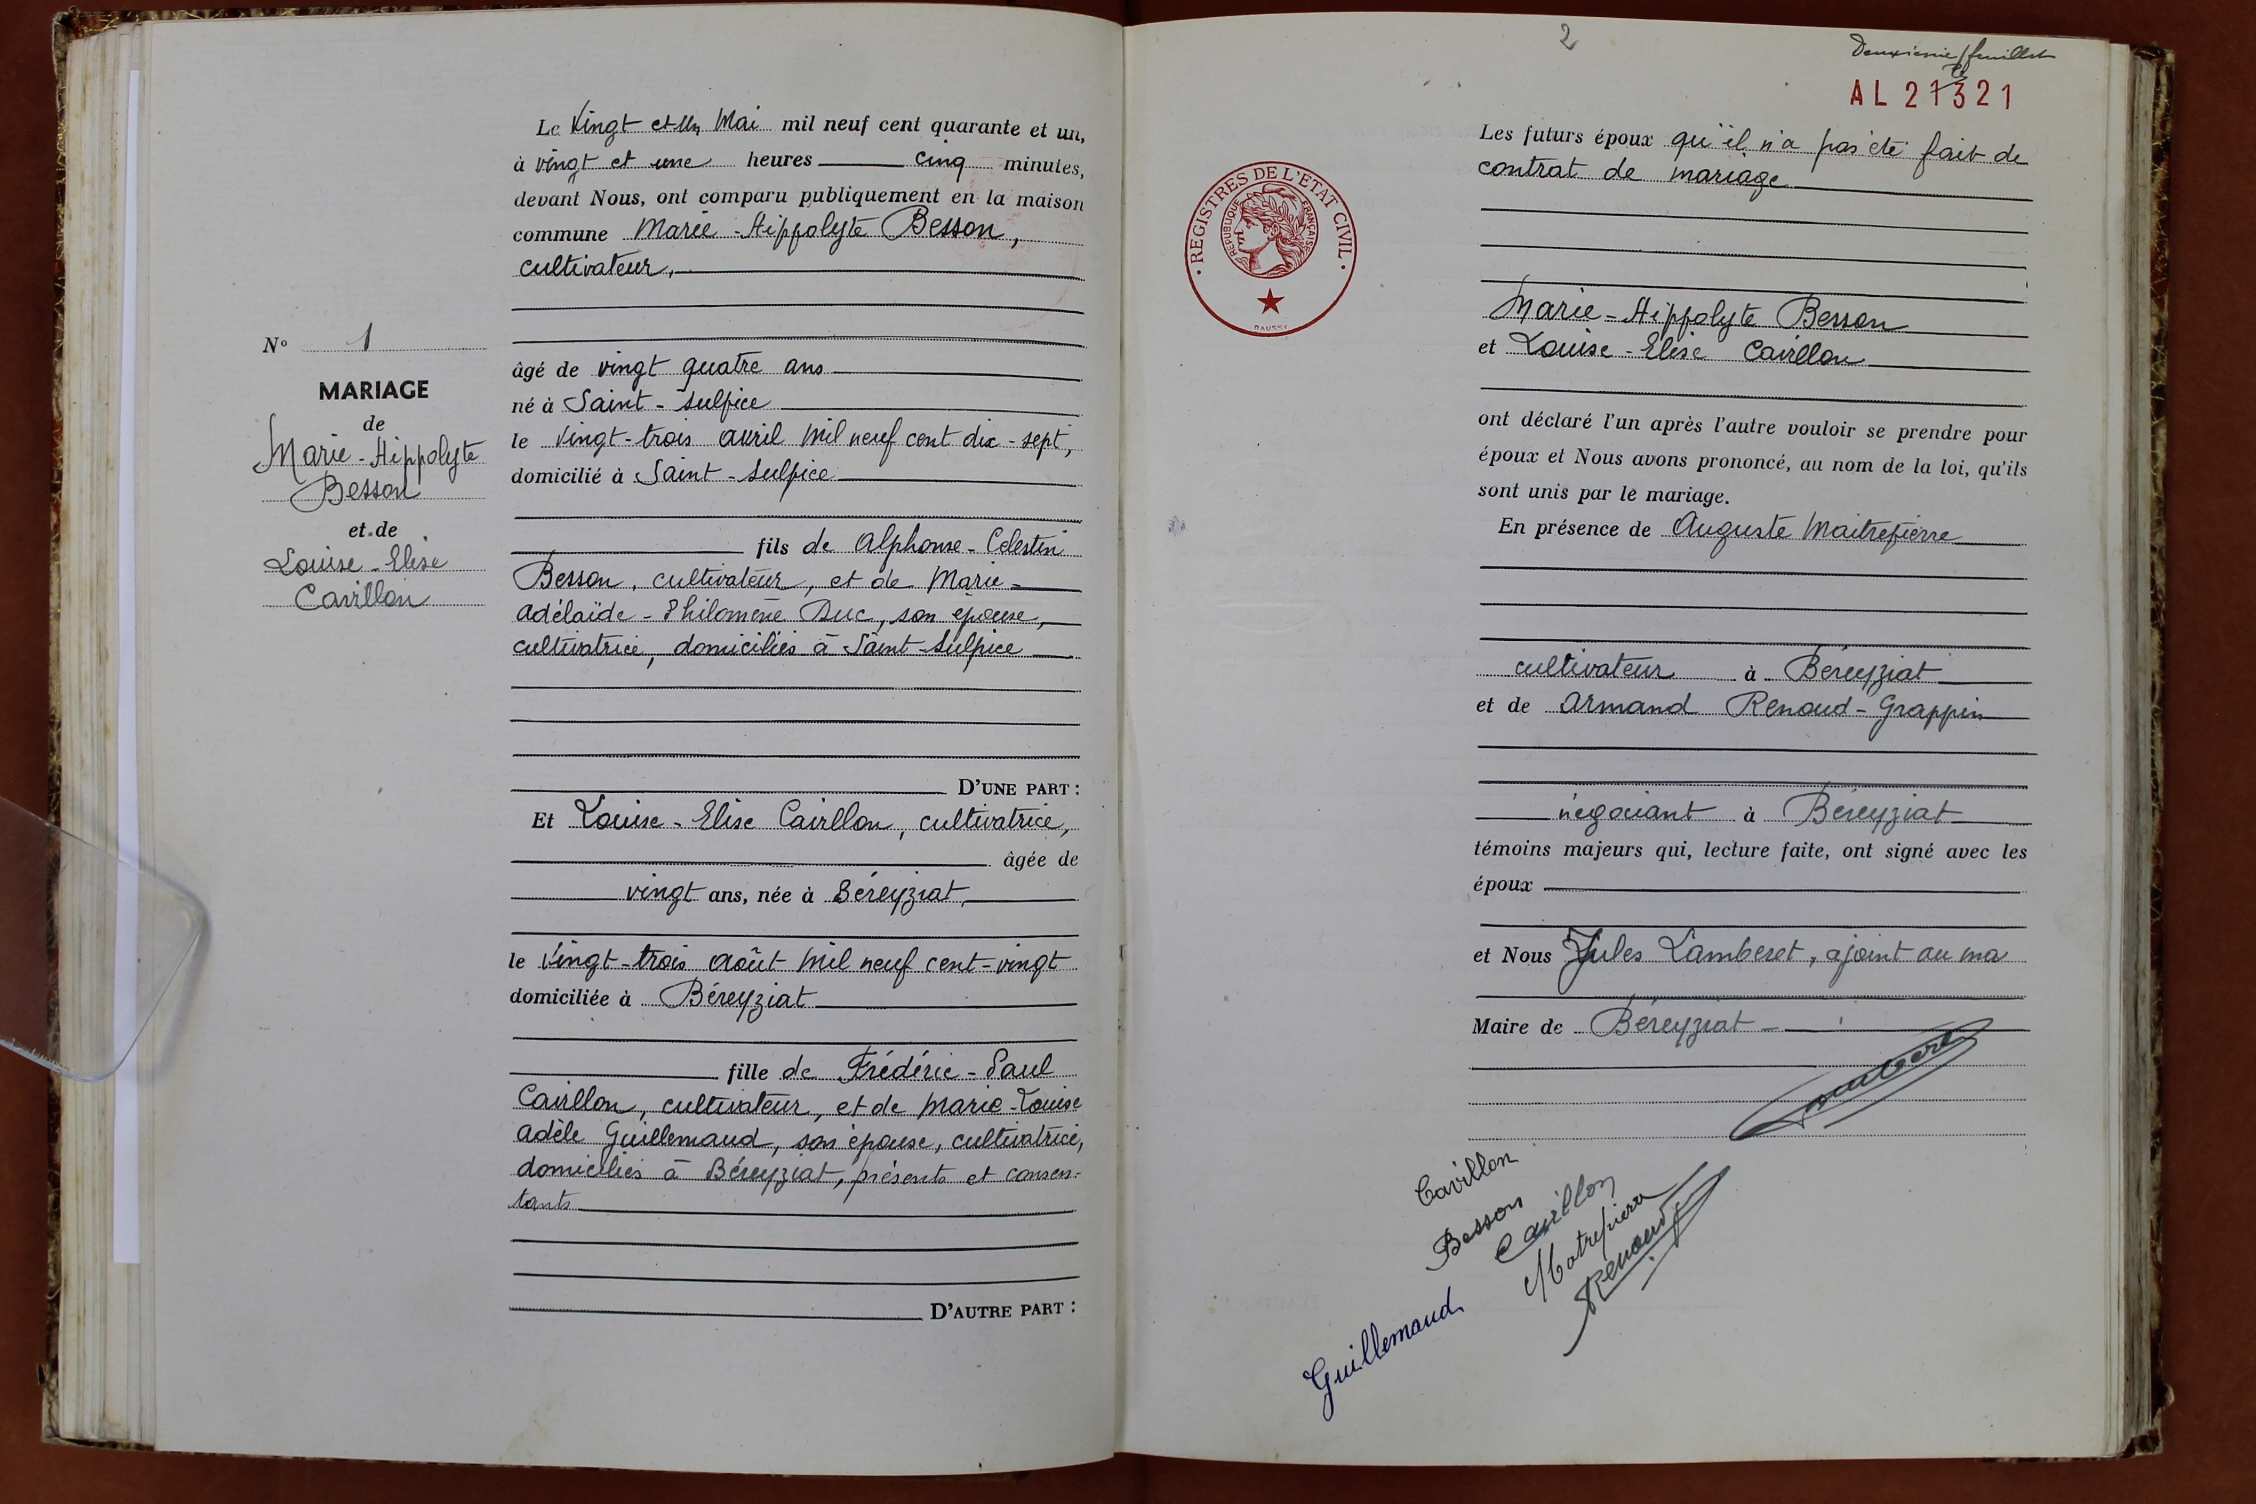 N° 1
MARIAGE
de
Marie-Hippolyte
Besson
et de
Louise-Elise
Cavillon
Le Vingt et Un Mai mil neuf cent quarante et un,
à vingt et une heures cinq minutes,
devant Nous, ont comparu publiquement en la maison
commune Marie-Hippolyte Besson,
cultivateur,
âgé de vingt quatre ans
né à Saint-Sulpice
le vingt-trois avril mil neuf cent dix-sept,
domicilié à Saint-Sulpice
fils de Alphonse-Celestin
Besson, cultivateur, et de Marie-
Adélaïde-Philomène Duc, son épouse,
cultivatrice, domiciliés à Saint-Sulpice
D'UNE PART :
Et Louise-Elise Cavillon, cultivatrice,
âgée de
vingt ans, née à Béreyziat,
le vingt-trois août mil neuf cent-vingt
domiciliée à Béreyziat
fille de Frédéric-Paul
Cavillon, cultivateur, et de Marie-Louise
Adèle Guillemaud, son épouse, cultivatrice,
domiciliés à Béreyziat, présents et consen-
tants
D'AUTRE PART :
2
Deuxième feuillet
AL 21321
REGISTRES DE L'ETAT CIVIL
REPUBLIQUE FRANÇAISE
Les futurs époux qu'il n'a pas été fait de
contrat de mariage
Marie-Hippolyte Besson
et Louise-Elise Cavillon
ont déclaré l'un après l'autre vouloir se prendre pour
époux et Nous avons prononcé, au nom de la loi, qu'ils
sont unis par le mariage.
En présence de Auguste Maitrepierre
cultivateur à Béreyziat
et de Armand Renoud-Grappin
négociant à Béreyziat
témoins majeurs qui, lecture faite, ont signé avec les
époux
et Nous Jules Lamberet, ajoint au ma
Maire de Béreyziat
Cavillon
Besson
Cavillon
Renoud
Guillemaud